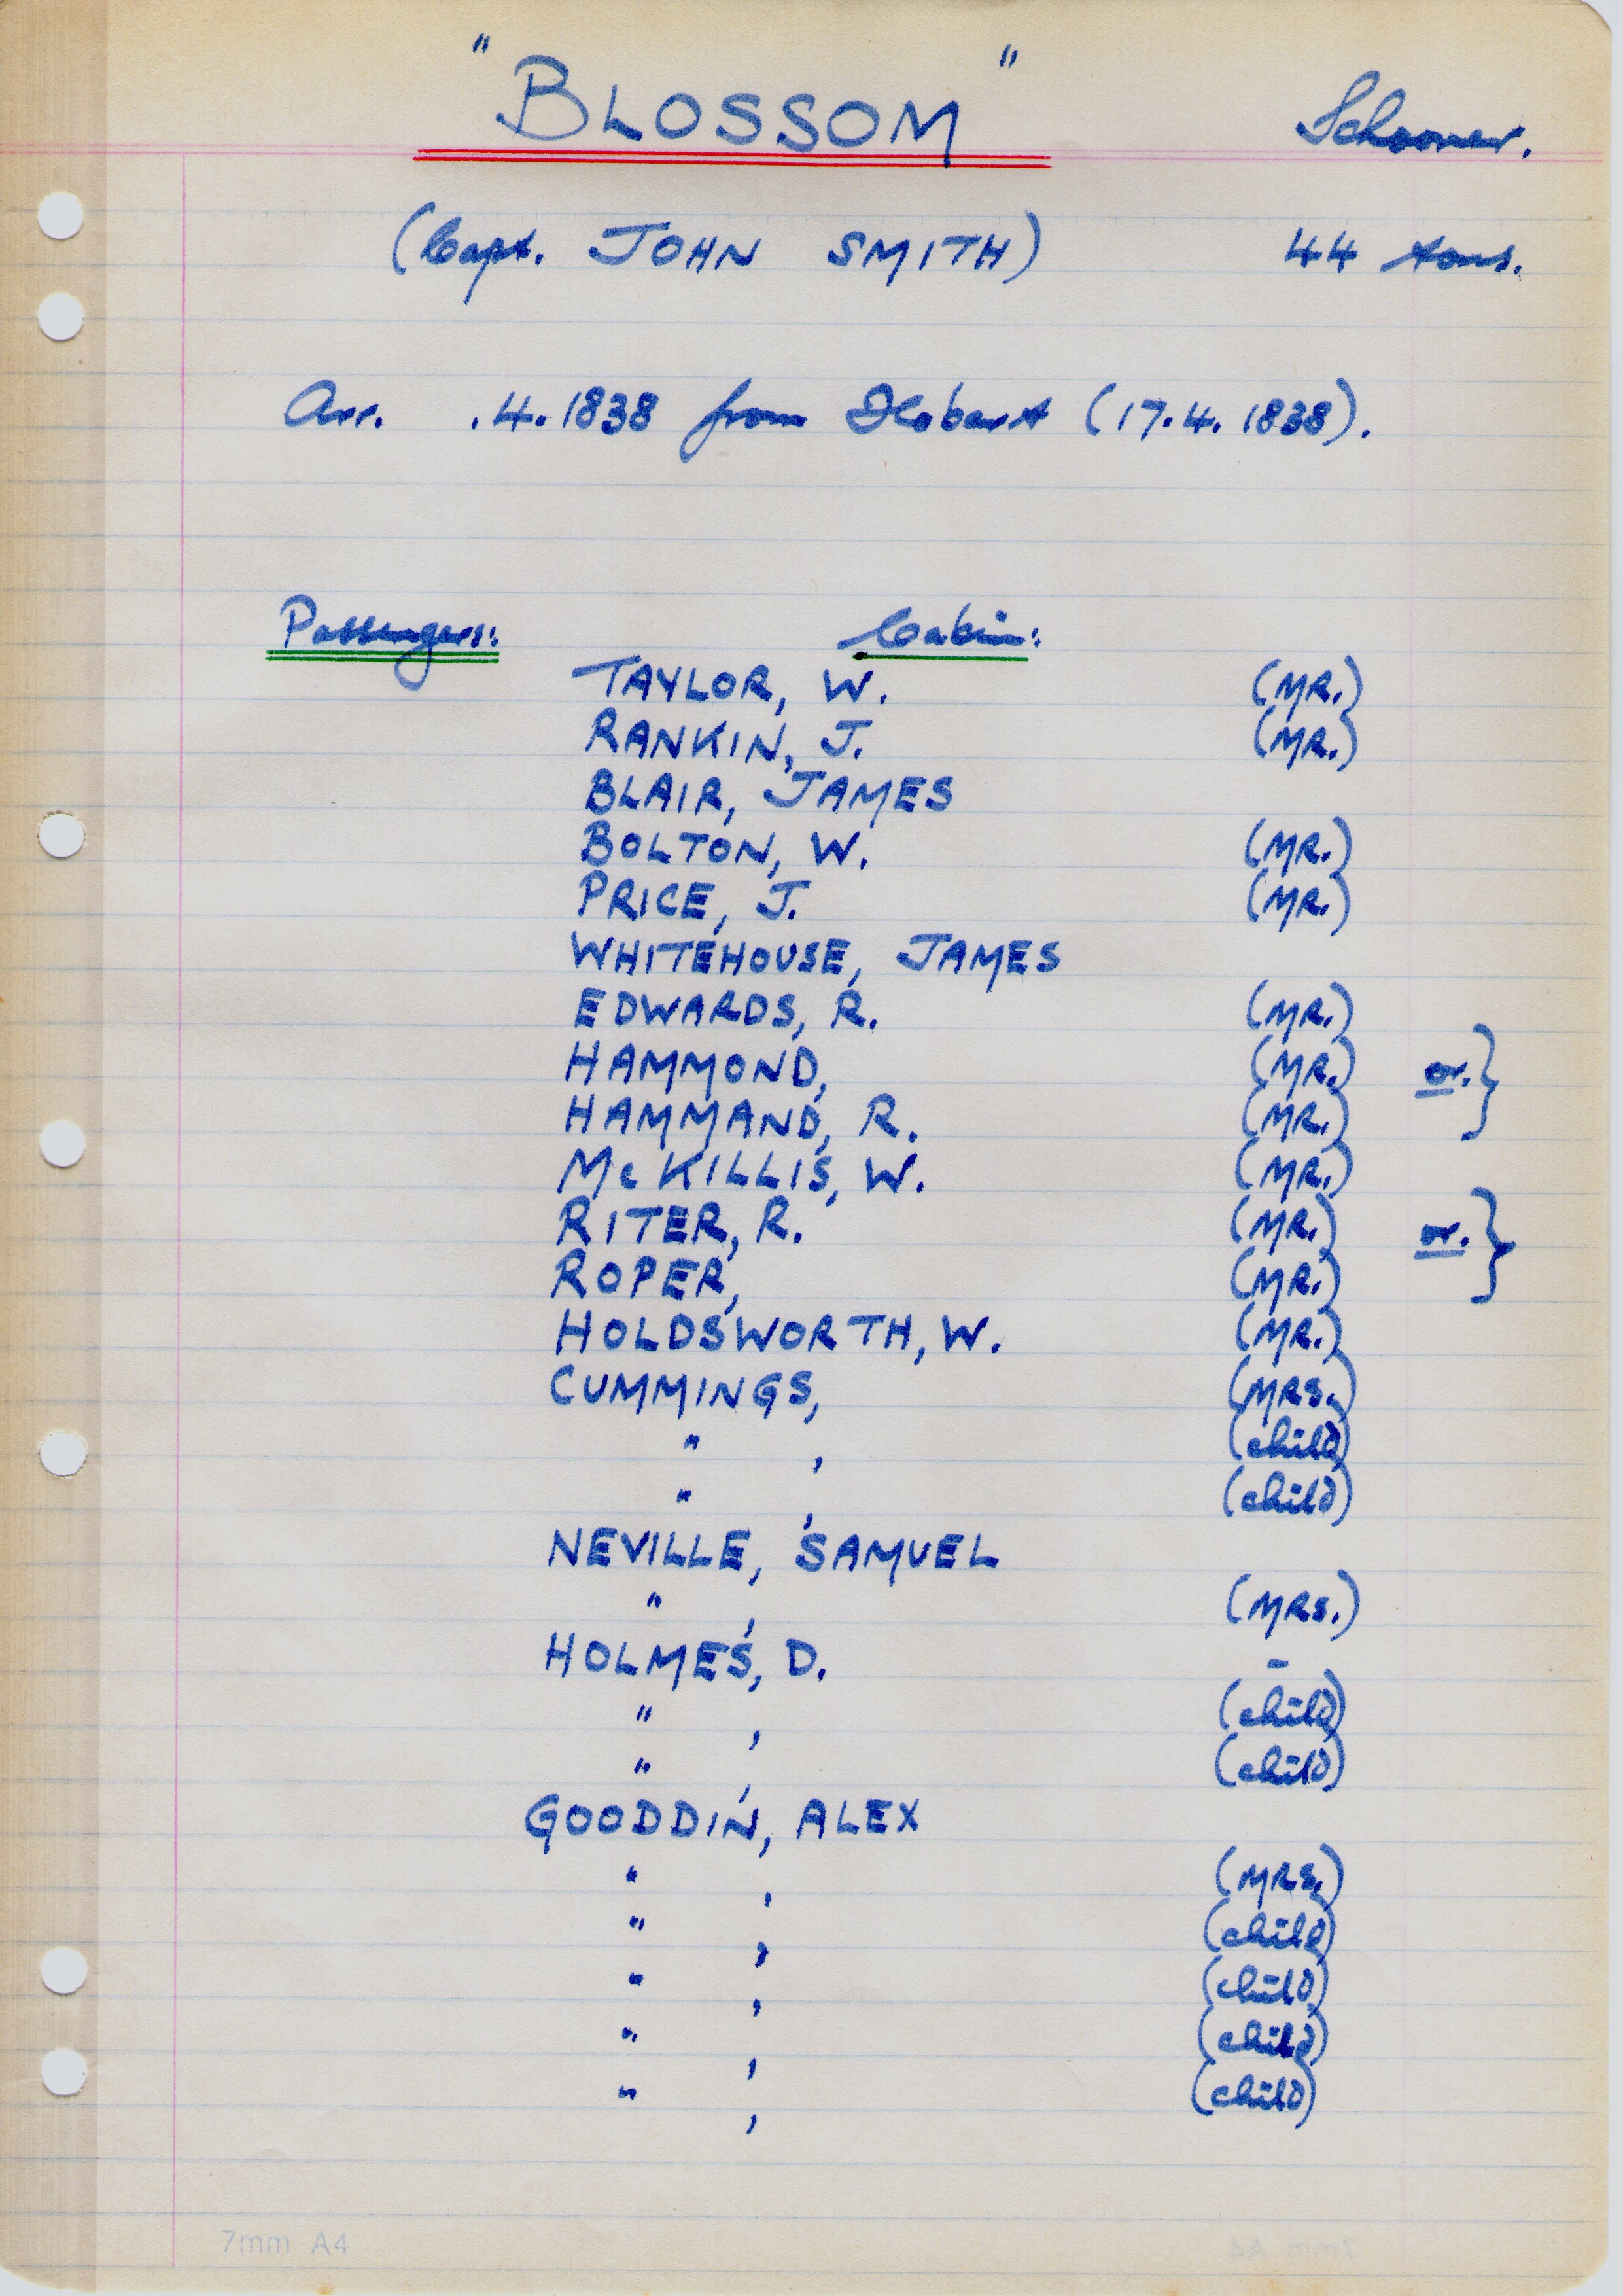 "BLOSSOM" Schooner.
(Capt. JOHN SMITH) 44 tons.
Arr. .4.1838 from Hobart (17.4.1838).
Passengers: Cabin:
TAYLOR, W. (MR.)
RANKIN, J. (MR.)
BLAIR, JAMES
BOLTON, W. (MR.)
PRICE, J. (MR.)
WHITEHOUSE, JAMES
EDWARDS, R. (MR.)
HAMMOND, (MR.) or. }
HAMMAND, R. (MR.)
McKILLIS, W. (MR.)
RITER, R. (MR.) or. }
ROPER, (MR.)
HOLDSWORTH, W. (MR.)
CUMMINGS, (MRS.)
" , (child)
" , (child)
NEVILLE, SAMUEL
" , (MRS.)
HOLMES, D. -
" , (child)
" , (child)
GOODDIN, ALEX
" , (MRS.)
" , (child)
" , (child)
" , (child)
" , (child)
7mm A4